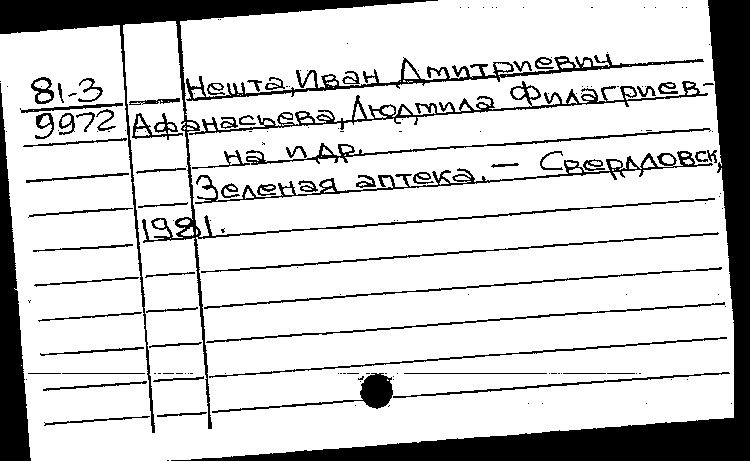 81-3 Нешта, Иван Дмитриевич.
9972 Афанасьева, Людмила Филагриев-
на и др.
Зеленая аптека. — Свердловск,
1981.